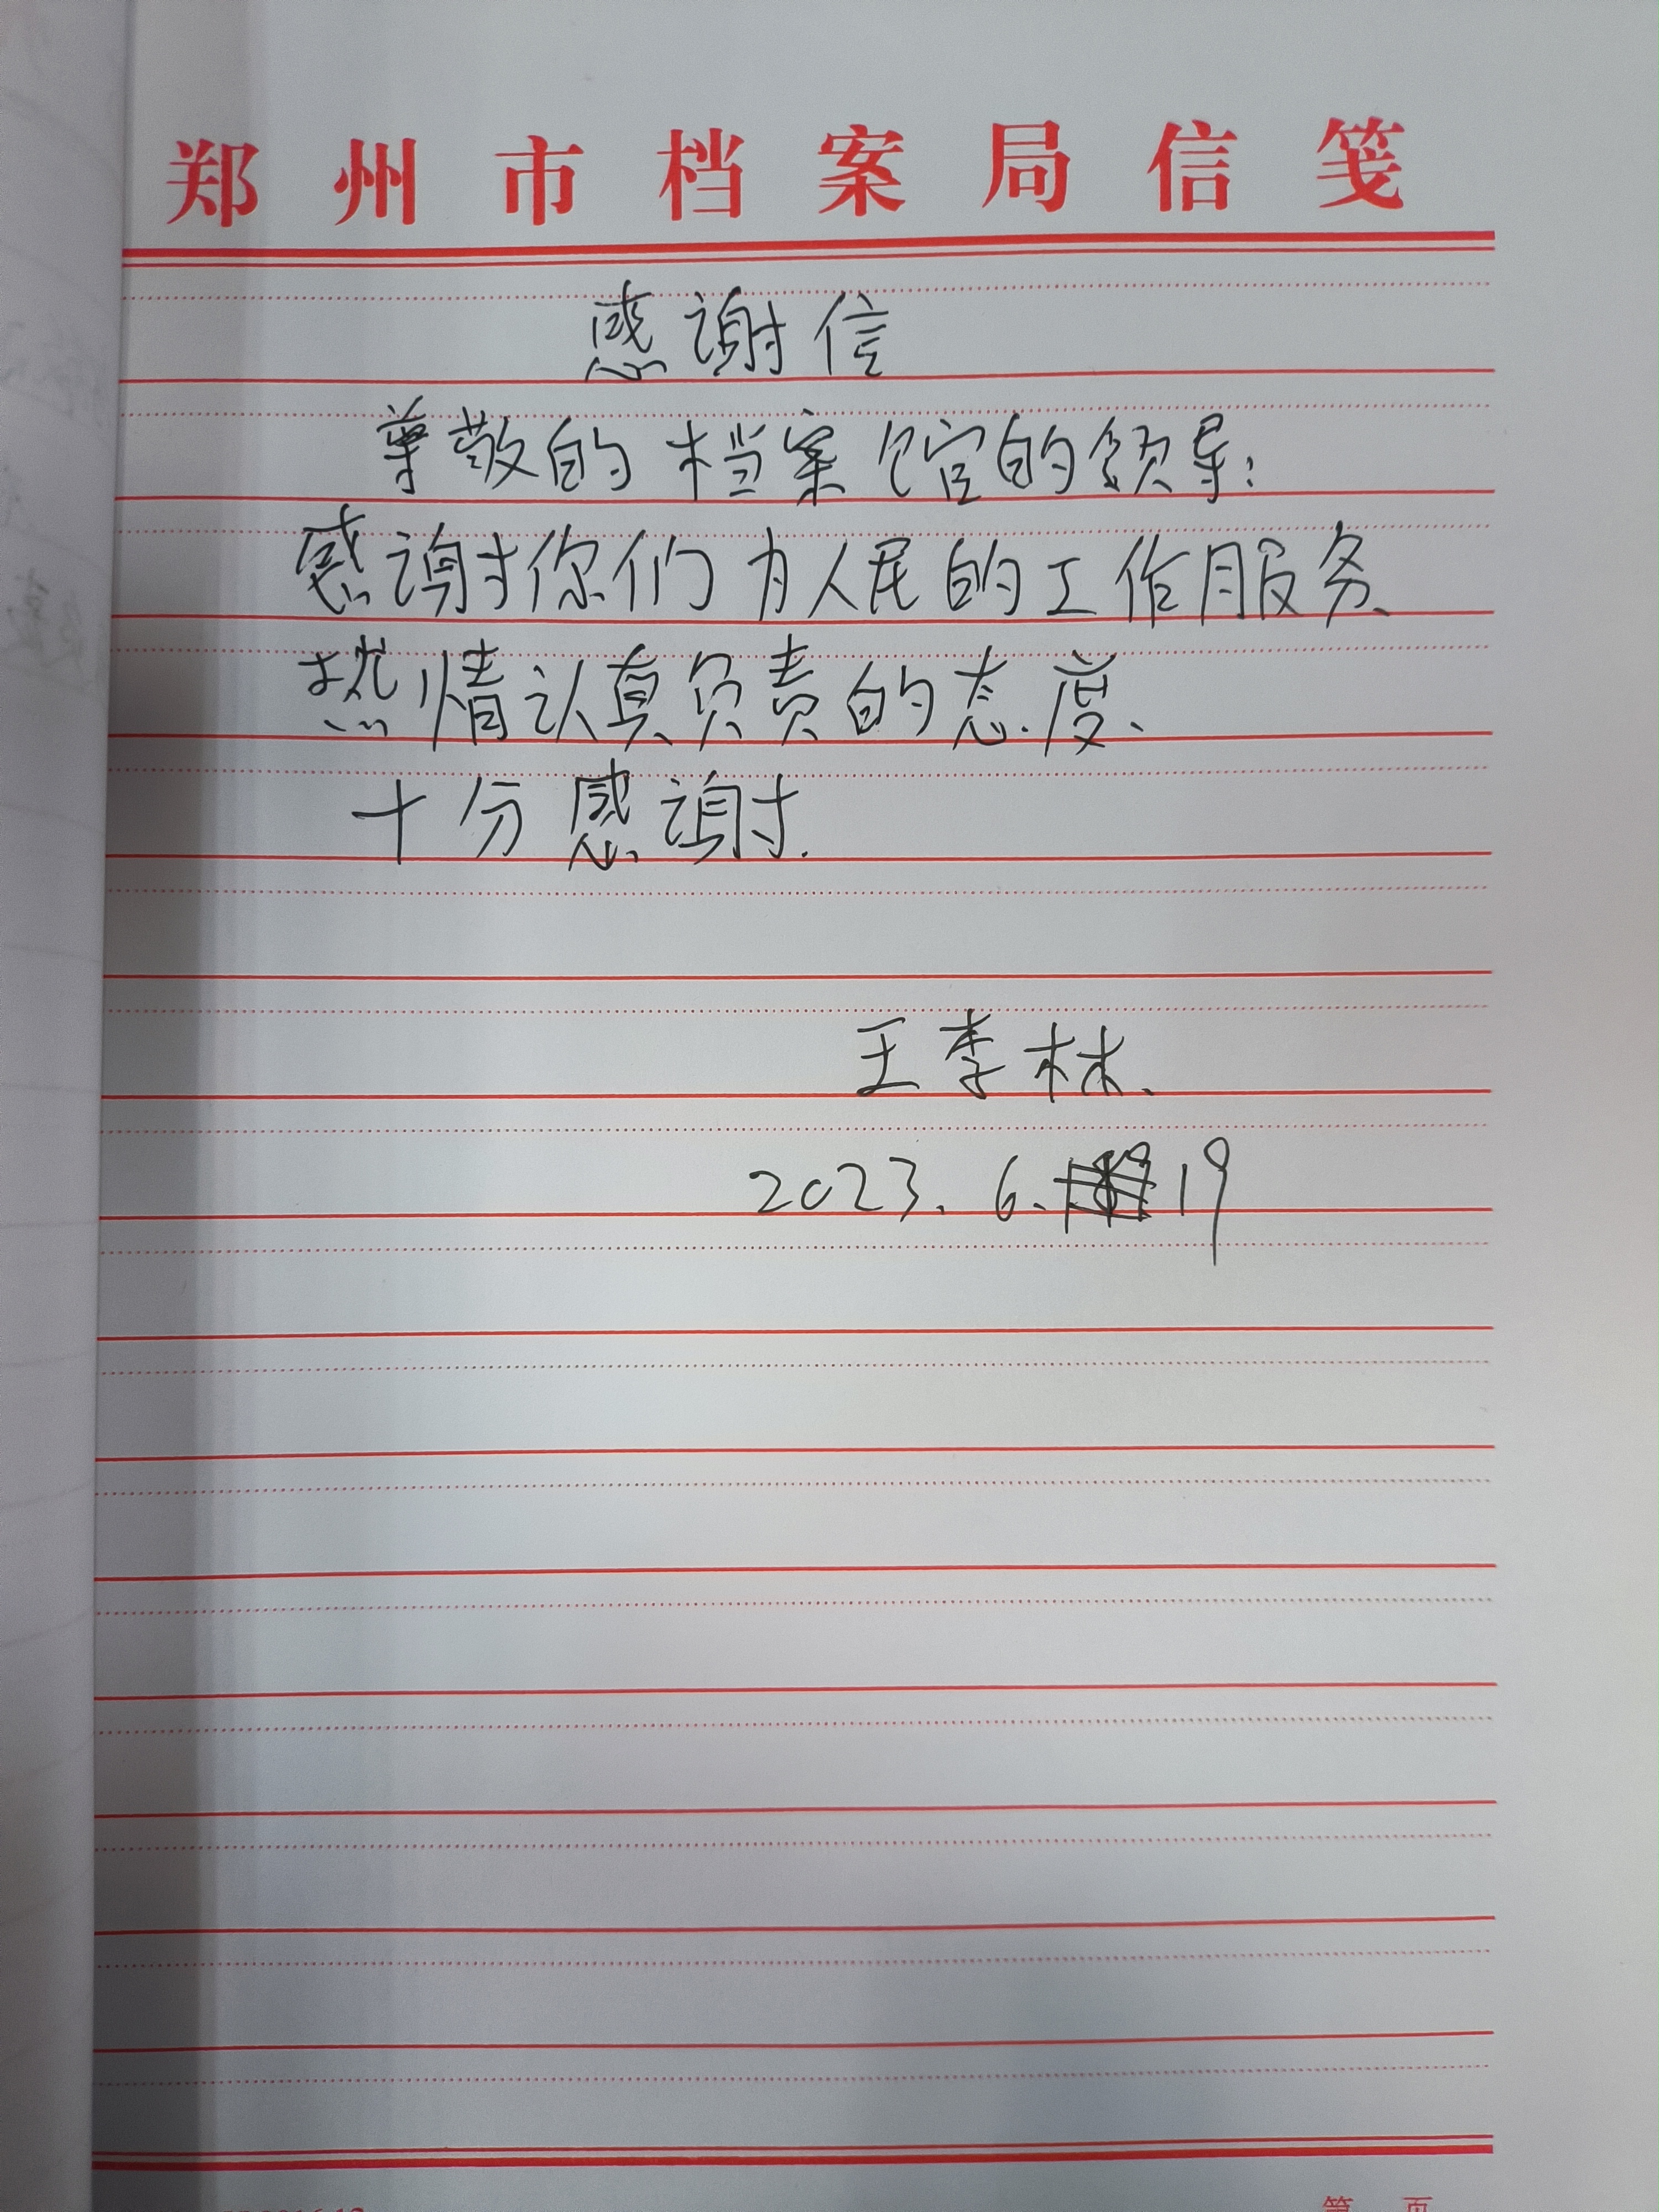 郑州市档案局信笺
感谢信
尊敬的档案馆的领导:
感谢你们为人民的工作服务、
热情认真负责的态度、
十分感谢.
王李林、
2023.6.19
第 页